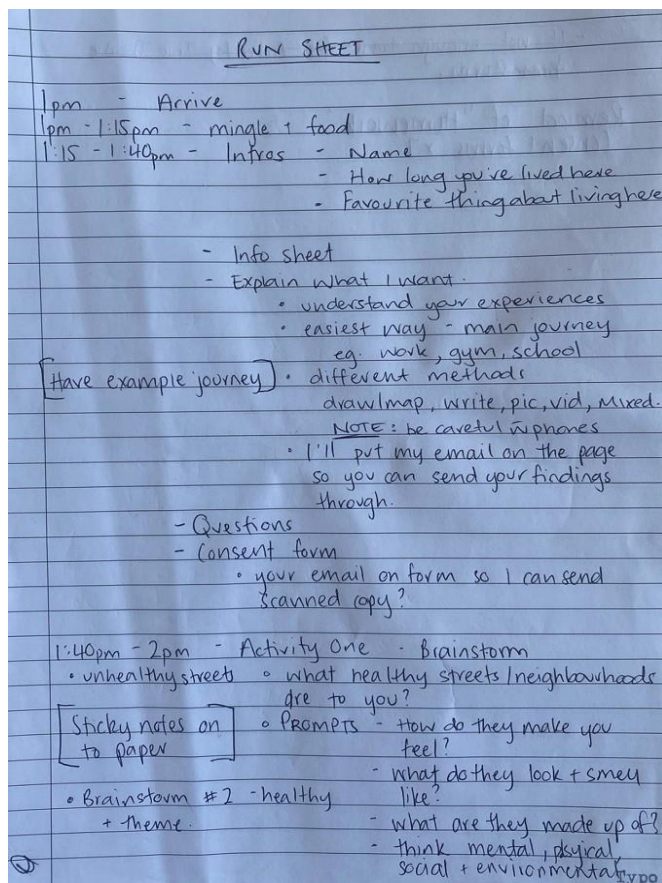 RUN SHEET
1pm - Arrive
1pm - 1:15pm - mingle + food
1:15 - 1:40pm - Intros - Name
- How long you've lived here
- Favourite thing about living here
- Info sheet
- Explain what I want.
• understand your experiences
• easiest way - main journey
eg. work, gym, school
[Have example journey] • different methods
draw/map, write, pic, vid, mixed.
NOTE: be careful w phones
• I'll put my email on the page
so you can send your findings
through.
- Questions
- Consent form
• your email on form so I can send
scanned copy?
1:40pm - 2pm - Activity One - Brainstorm
• unhealthy streets • what healthy streets/neighbourhoods
are to you?
[Sticky notes on • PROMPTS - How do they make you
to paper] feel?
- what do they look + smell
• Brainstorm #2 - healthy like?
+ theme. - what are they made up of?
- think mental, physical,
social + environmental